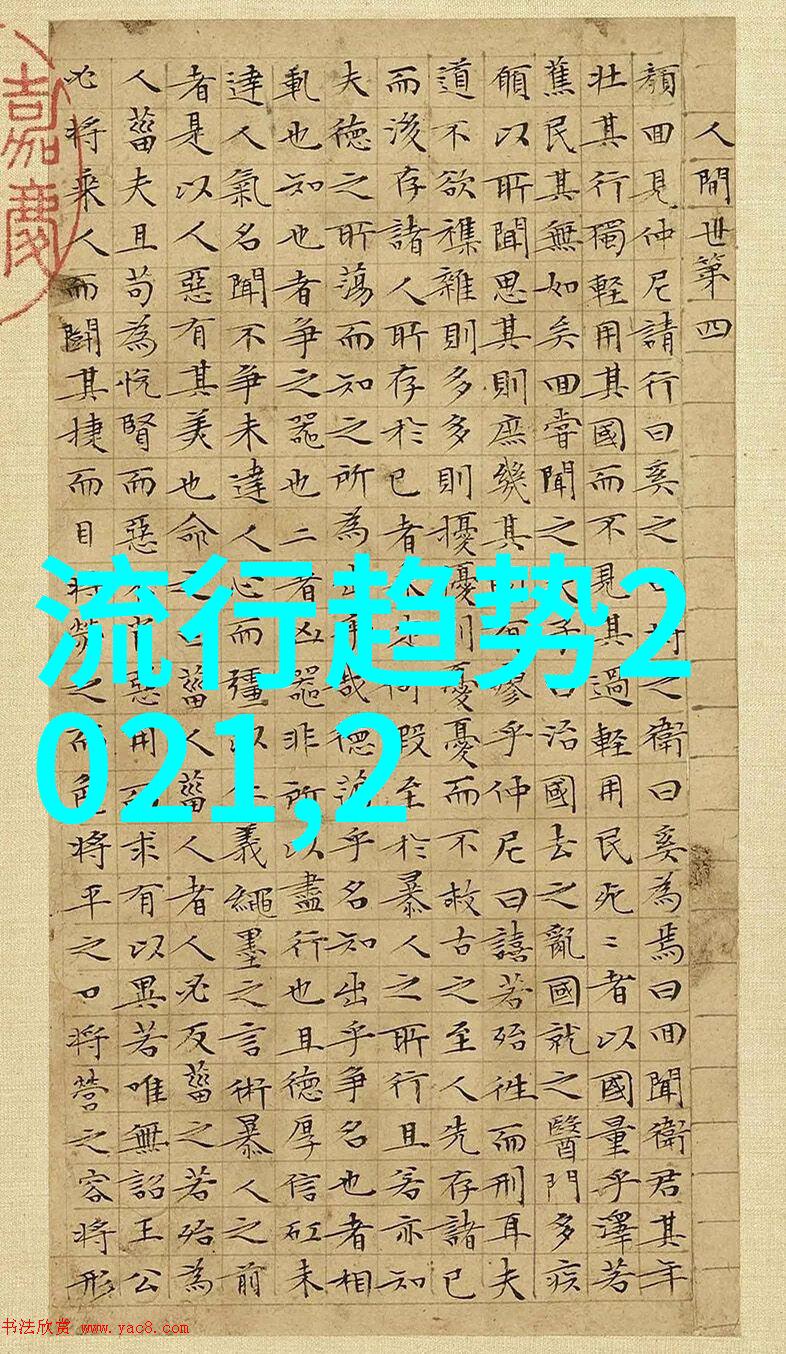 人間世第四
顏囬見仲尼請行曰奚之曰將之衛曰奚為焉曰囬聞衛君其年
壯其行獨輕用其國而不見其過輕用民死〻者以國量乎澤若
蕉民其無如矣囬嘗聞之夫子曰治國去之亂國就之醫門多疾
願以所聞思其則庶幾其有瘳乎仲尼曰譆若殆往而刑耳夫
道不欲襍雜則多多則擾擾則憂憂而不救古之至人先存諸己
而後存諸人所存於己者未何暇至於暴人之所行且若亦知
夫德之所蕩而知之所為出乎哉德蕩乎名知出乎爭名也者相
軋也知也者爭之器也二者凶器非所以盡行也且德厚信矼未
達人氣名聞不爭未達人心而彊以仁義繩墨之言術暴人之前
者是以人惡有其美也命之曰菑人菑人者人必反菑之若殆為
人菑夫且苟為悅賢而惡不肖惡用而求有以異若唯無詔王公
必將乘人而鬭其捷而目將熒之而色將平之口將營之容將形
嘉慶
流行趋势2
021,2
书法欣赏 www.yac8.com